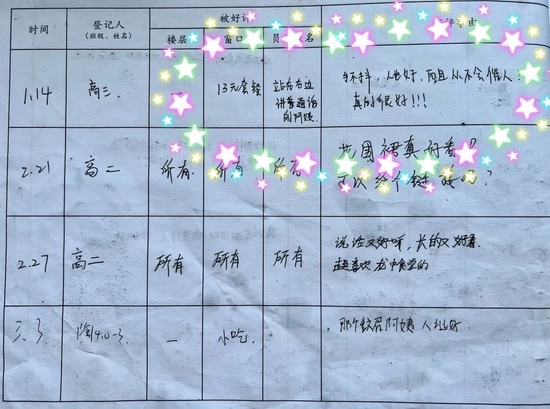 被好评
时间 登记人 楼层 窗口 员 名 由
(班级、姓名)
1.14 高三 一 13元套餐 站在右边 不抖,人也好,而且从不会催人!
讲普通话 真的很好!!!
的阿姨
2.21 高二 所有 所有 所有 真好看?
可以给个链接吗?
2.27 高二 所有 所有 所有 说话又好听,长的又好看
超喜欢 的
三.3 一 小吃. 那个 阿姨 人 好